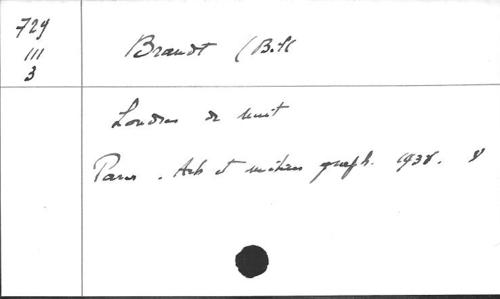 729
III
3
Brandt (Bill
Londres de nuit
Paris. Arts et métiers graph. 1938. 8